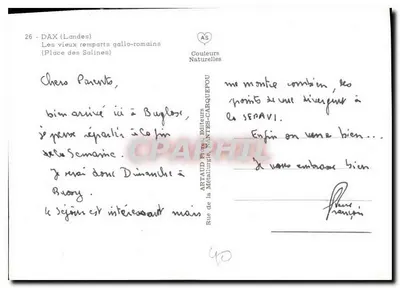 26 - DAX (Landes)
Les vieux remparts gallo-romains
(Place des Salines)
AS
Couleurs
Naturelles
Chers Parents,
bien arrivé ici à Buglose,
je pense repartir à la fin
de la Semaine.
Je serai donc Dimanche à
le Séjour est intéressant mais
me montre combien, les
points de vue divergent à
Enfin on verra bien...
Je vous embrasse bien
François
ARTAUD Editeurs
Rue de la Métallurgie NANTES-CARQUEFOU
CPAPHIL
40